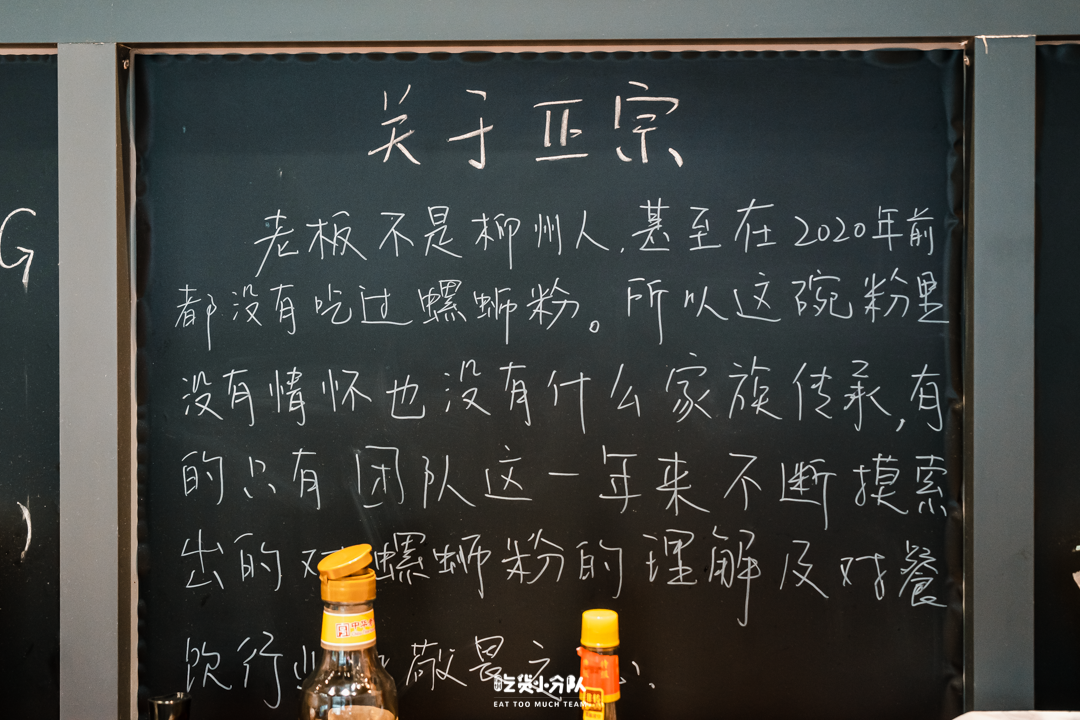 关于正宗
老板不是柳州人,甚至在2020年前
都没有吃过螺蛳粉。所以这碗粉里
没有情怀也没有什么家族传承,有
的只有团队这一年来不断摸索
出的对螺蛳粉的理解及对餐
饮行业 敬畏之心.
G
)
吃货小分队
EAT TOO MUCH TEAM